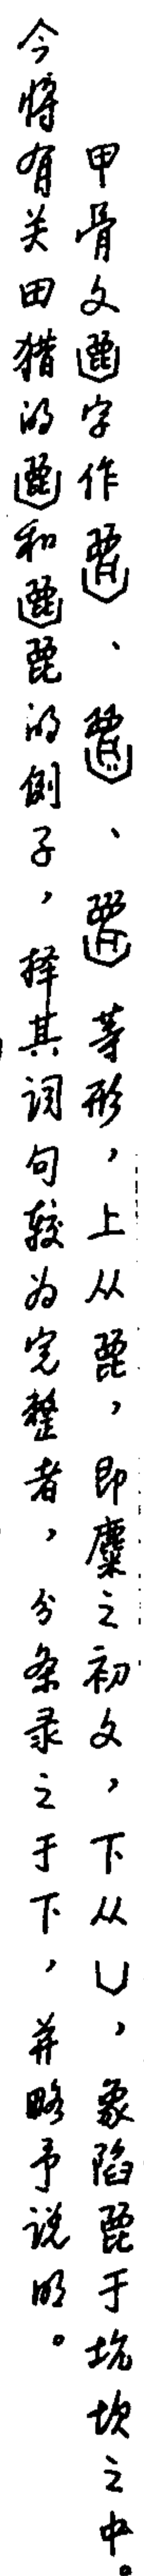 甲骨文字作、、等形，上从，即麋之初文，下从凵，象陷于坑坎之中。
今将有关田猎的和的例子，择其词句较为完整者，分条录之于下，并略予说明。